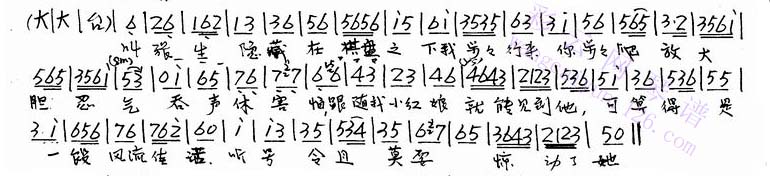 (大|大|台) 6|26|162|13|36|56|5656|i5|6i|3535|63|3i|56|565|3·2|356i|
叫张生隐藏在棋盘之下我步步行来你步步爬放大
565|356i|53|0i|65|76|727|66|43|23|46|4643|2123|536|5i|36|536|55|
胆忍气吞声休害怕,跟随我小红娘就能见到他,可算得是
3·i|656|76|762|60|i|i3|35|534|35|67|65|3643|2123|50‖
一段风流佳话.听号令且莫要惊动了她